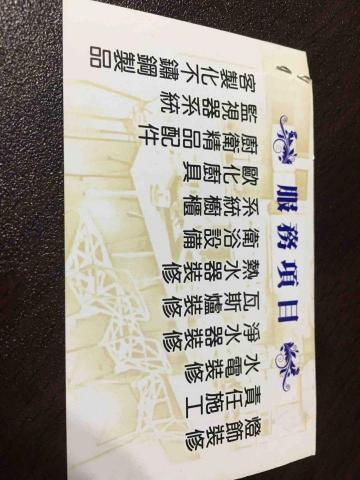 服務項目
客製化不鏽鋼製品
監視器系統
廚衛精品配件
歐化廚具
系統櫥櫃
衛浴設備
熱水器裝修
瓦斯爐裝修
淨水器裝修
水電裝修
責任施工
燈飾裝修